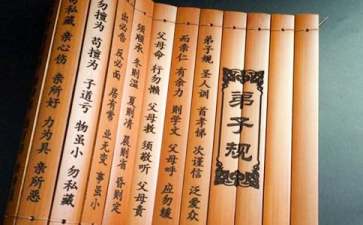 弟子规
弟子规 圣人训 首孝悌 次谨信 泛爱众
而亲仁 有余力 则学文 父母呼 应勿缓
父母命 行勿懒 父母教 须敬听 父母责
须顺承 冬则温 夏则清 晨则省 昏则定
出必告 反必面 居有常 业无变 事虽小
勿擅为 苟擅为 子道亏 物虽小 勿私藏
私藏 亲心伤 亲所好 力为具 亲所恶